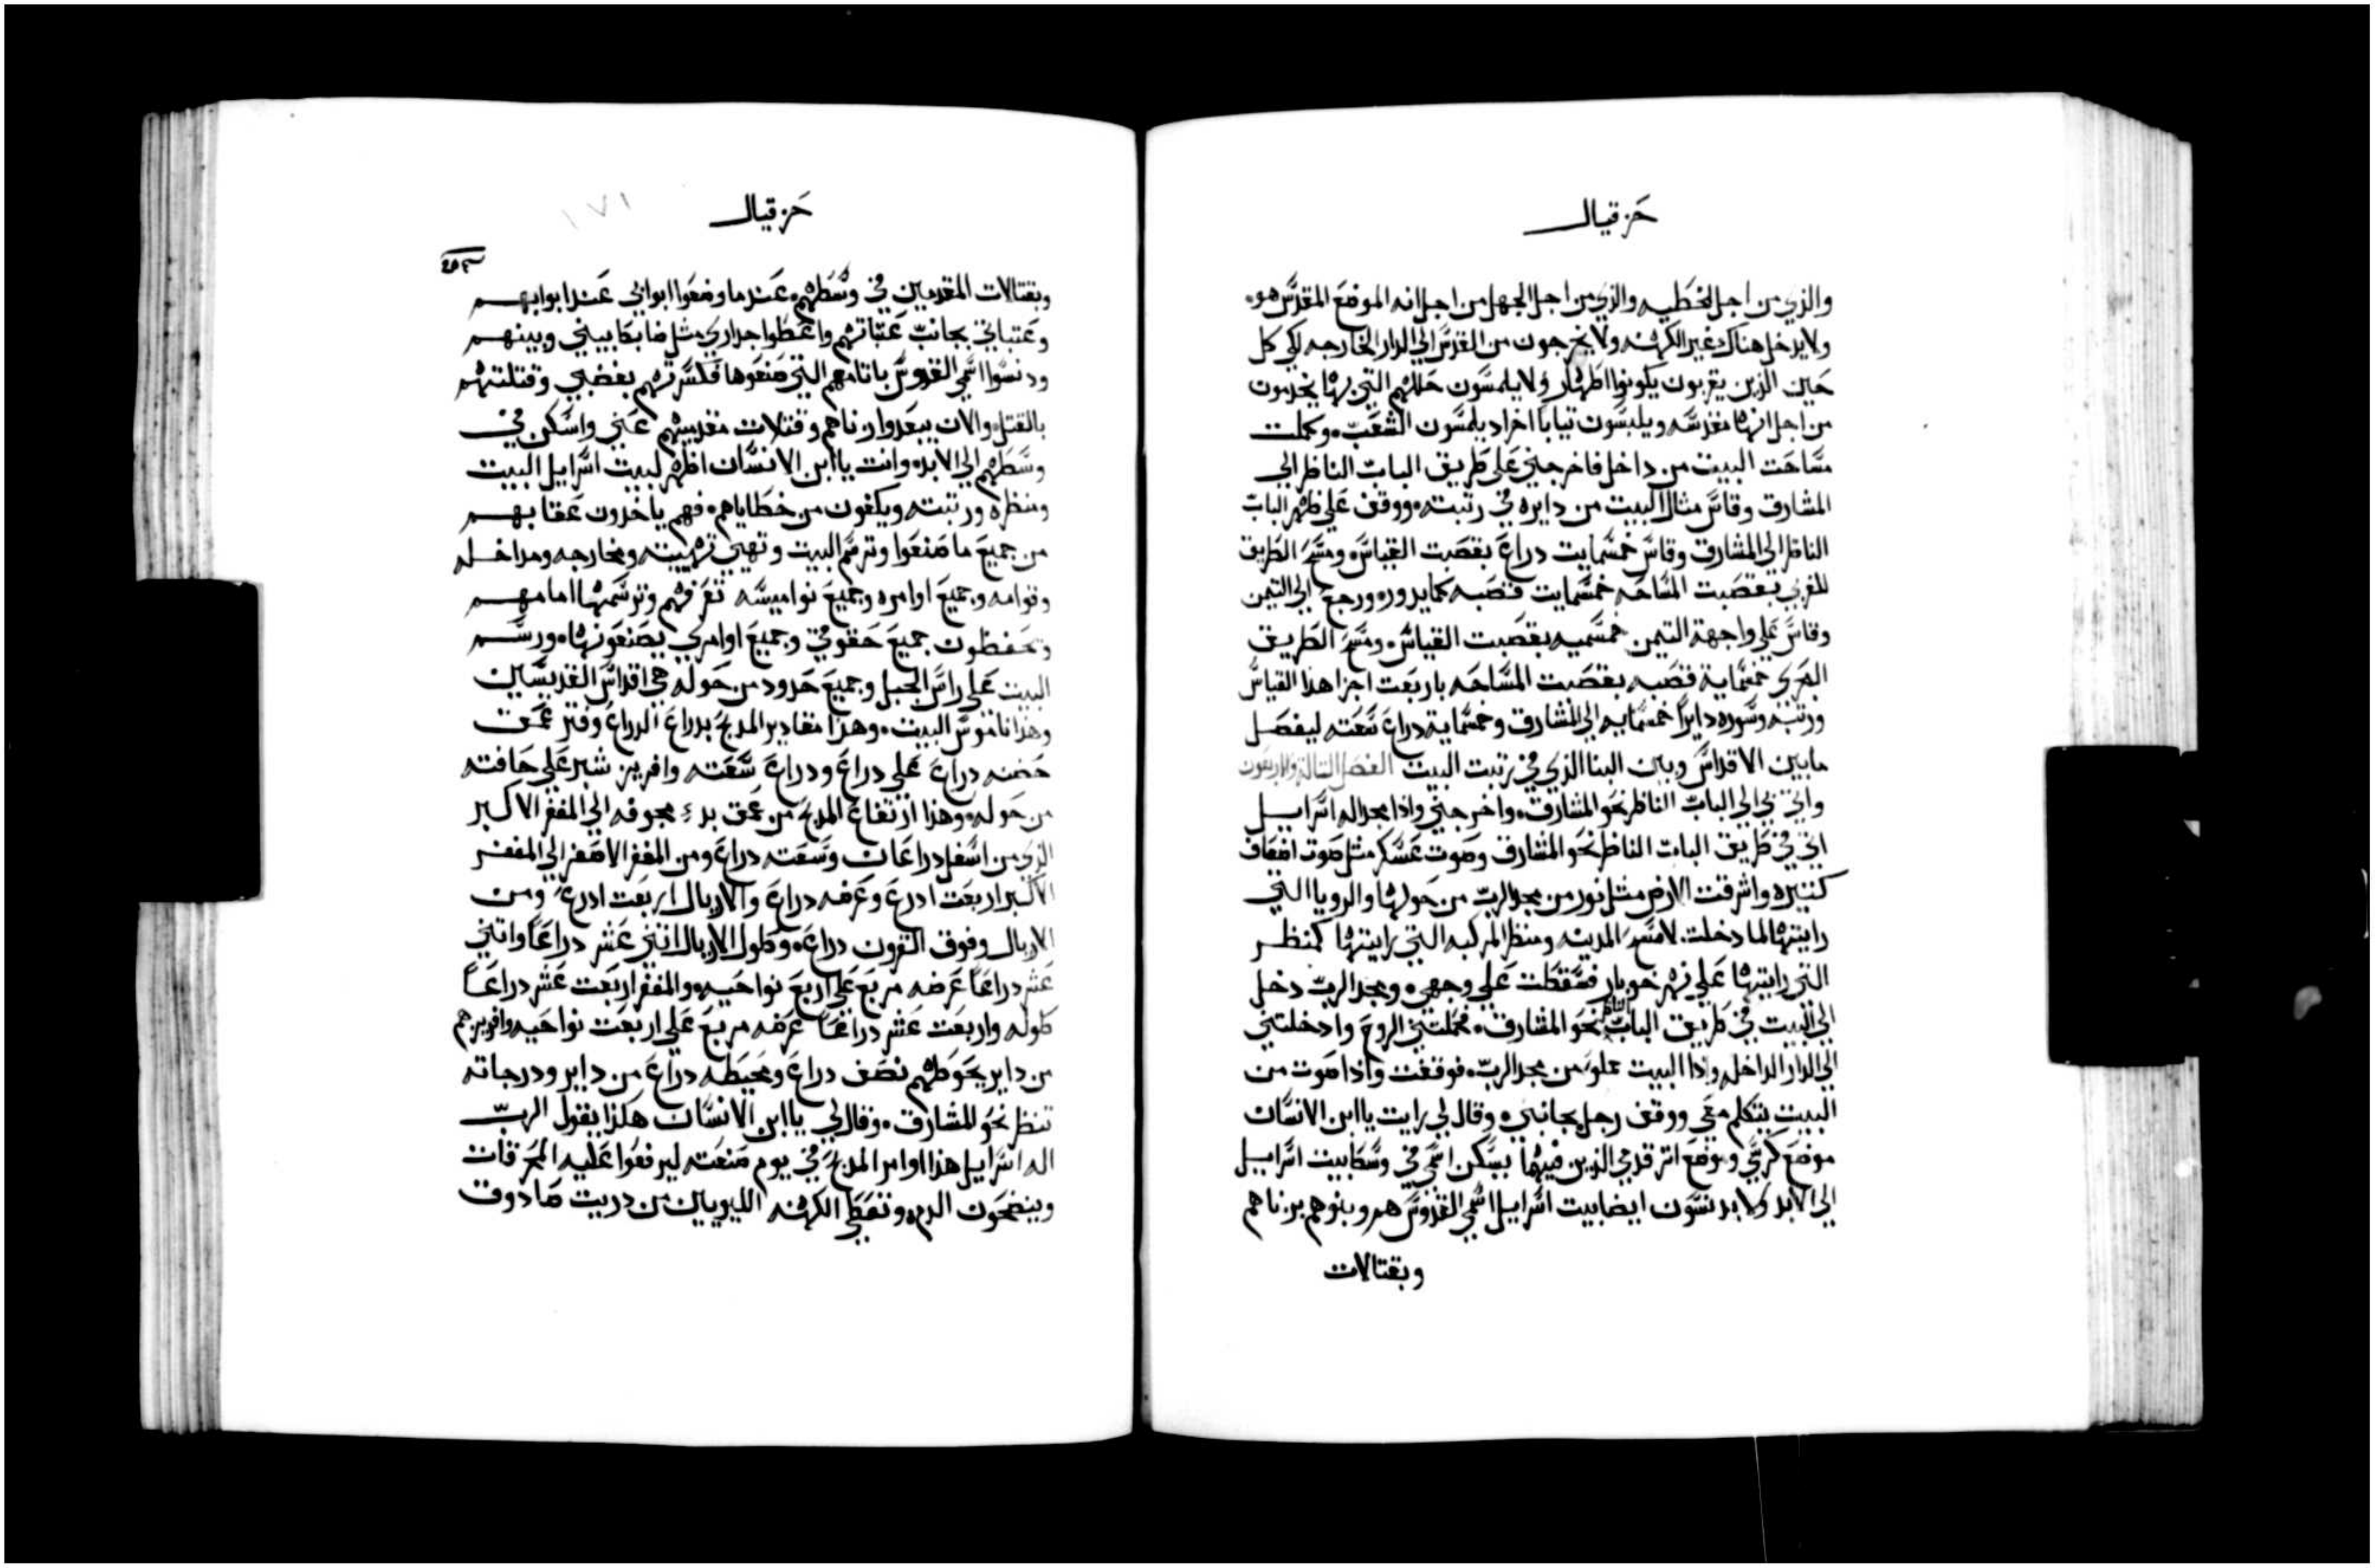 حزقيال
والذي من اجل الخطيه والذي من اجل الجهل من اجل انه الموضع المقدس هو.
ولا يدخل هناك غير الكهنه ولا يخرجون من القدس الي الدار الخارجه لكي كل
حين الذين يقربون يكونوا اطهار ولا يلمسون حللهم التي بها يخدمون
من اجل انها مقدسه ويلبسون تيابا اخر اد يلمسون الشعب. وكملت
مساحت البيت من داخل فاخرجني علي طريق الباب الناظر الي
المشارق وقاس مثال البيت من دايره في رتبته. ووقف علي ظهر الباب
الناظر الي المشارق وقاس خمسمايت دراع بقصبت القياس. ومسح الطريق
للغربي بقصبت المساحه خمسمايت قصبه كما يدور. ورجع الي التيمن
وقاس علي واجهة التيمن خمسميه بقصبت القياس. ومسح الطريق
البحري خمسماية قصبه بقصبت المساحه باربعت اجزا هذا القياس
ورتبه وسوره دايرا خمسمايه الي المشارق وخمسماية دراع سعته ليفصل
مابين الاقداس وبين البنا الذي في رتبت البيت الفصل التالت والاربعون
واتي بي الي الباب الناظر نحو المشارق. واخرجني واذا مجد اله اسراييل
اتي في طريق الباب الناظر نحو المشارق وصوت عسكر مثل صوت اضعاف
كتيره واشرقت الارض مثل نور من مجد الرب من حولها والرويا التي
رايتها لما دخلت. لامسح المدينه ومنظر المركبه التي رايتها كمنظر
التي رايتها علي نهر خوبار فسقطت علي وجهي. ومجد الرب دخل
الي البيت في طريق الباب الناظر نحو المشارق. فحملتني الروح وادخلتني
الي الدار الداخله واذا البيت مملو من مجد الرب. فوقفت واذا صوت من
البيت يتكلم معي ووقف رجل بجانبي. وقال لي رايت يا ابن الانسان
موضع كرسي وموضع اتر قدمي الذين فيهما يسكن اسمي في وسط بيت اسراييل
الي الابد ولا يدنسون ايضا بيت اسراييل اسمي القدوس هم وبنوهم بزناهم
وبقتالات
حزقيال
١٧١
وبقتالات المقدمين في وسطهم. عندما وضعوا ابوابي عند ابوابهم
وعتباتي بجانب عتباتهم واعطوا جداري مثل ضابط بيني وبينهم
ودنسوا اسمي القدوس باتامهم التي صنعوها فكسرتهم بغضبي وقتلتهم
بالقتل. والان يبعدوا زناهم وقتلات مقدميهم عني واسكن في
وسطهم الي الابد. وانت يا ابن الانسان اظهر لبيت اسراييل البيت
ومنظره ورتبته ويكفون من خطاياهم. فهم ياخدون عقابهم
من جميع ما صنعوا وترسم البيت وتهيي تهييته ومخارجه ومداخله
وقوامه وجميع اوامره وجميع نواميسه تعرفهم وترسمها امامهم
وتحفظون جميع حقوقي وجميع اوامري يصنعونها. ورسم
البيت علي راس الجبل وجميع حدود من حوله هي اقداس القديسين
وهذا ناموس البيت. وهذا مقادير المدبح بدراع الدراع وفتر عمق
حضنه دراع علي دراع ودراع سعته وافريز شبر علي حافته
من حوله. وهذا ارتفاع المدبح من عمق بدء مجوفه الي المغفر الاكبر
الذي من اسفل دراعان وسعته دراع ومن المغفر الاصغر الي المغفر
الاكبر اربعت ادرع وعرضه دراع والاريال اربعت ادرع ومن
الاريال وفوق القرون دراع. وطول الاريال اتني عشر دراعا واتني
عشر دراعا عرضه مربع علي اربع نواحيه. والمغفر اربعت عشر دراعا
طوله واربعت عشر دراعا عرضه مربع علي اربعت نواحيه وافريزهم
من داير يحوطهم نصف دراع ومحيطه دراع من داير ودرجاته
تنظر نحو المشارق. وقال لي يا ابن الانسان هكذا يقول الرب
اله اسراييل هذا اوامر المدبح في يوم صنعته ليرفعوا عليه المحرقات
وينضحون الدم. وتعطي الكهنه الليوييين من دريت صادوق